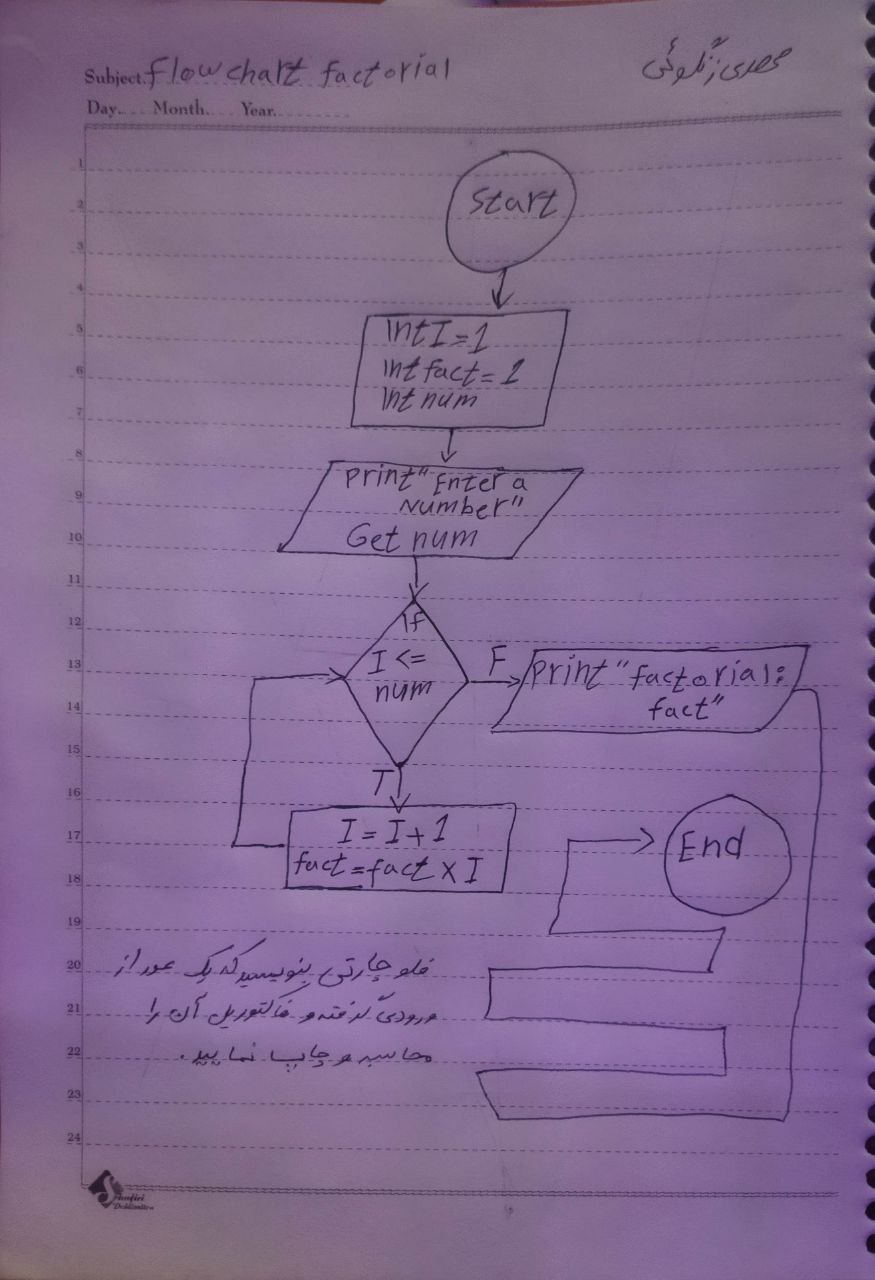 Subject. Flowchart factorial
Day.... Month.... Year.
1
2
3
4
5
6
7
8
9
10
11
12
13
14
15
16
17
18
19
20
21
22
23
24
Start
Int I = 1
Int fact = 1
Int num
Print "Enter a
Number"
Get num
If
I <=
num
F
Print "factorial:
fact"
T
I = I + 1
fact = fact × I
End
فلوچارتی بنویسید که یک عدد از
ورودی گرفته و فاکتوریل آن را
محاسبه و چاپ نمایید.